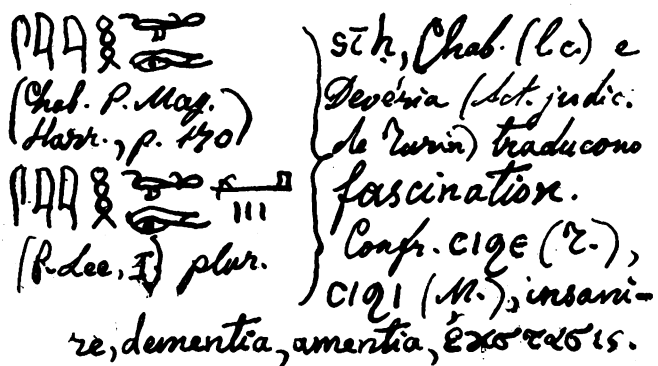 (Chab. P. Mag.
Harr., p. 170)
(P. Lee, I) plur.
sīḥ, Chab. (l.c.) e
Devéria (Act. judic.
de Turin) traducono
fascination.
Confr. ⲥⲓϩⲉ (T.),
ⲥⲓϩⲓ (M.), insani-
re, dementia, amentia, ἔκστασις.